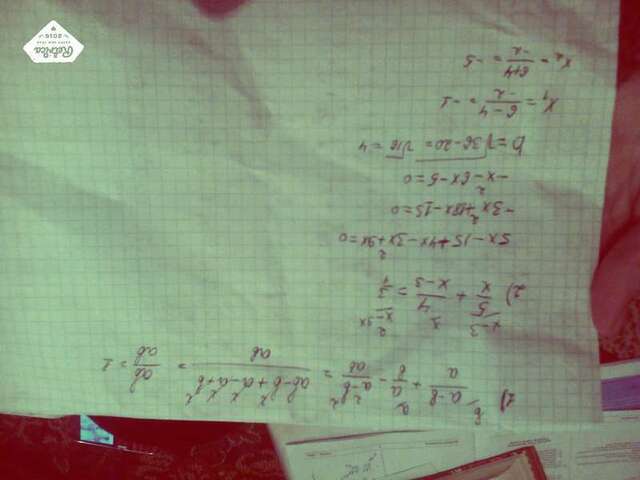 b a
1) a-b/a + a/b - a²-b²/ab = ab-b²+a²-a²+b²/ab = ab/ab = 1
x-3 x x²-3x
2) 5/x + 4/x-3 = 3/1
5x-15+4x-3x²+9x=0
-3x²+18x-15=0
-x²-6x-5=0
D=√36-20= √16=4
x₁=6-4/-2=-1
x₂=6+4/-2=-5
Retrica
HAPPY NEW YEAR
2016